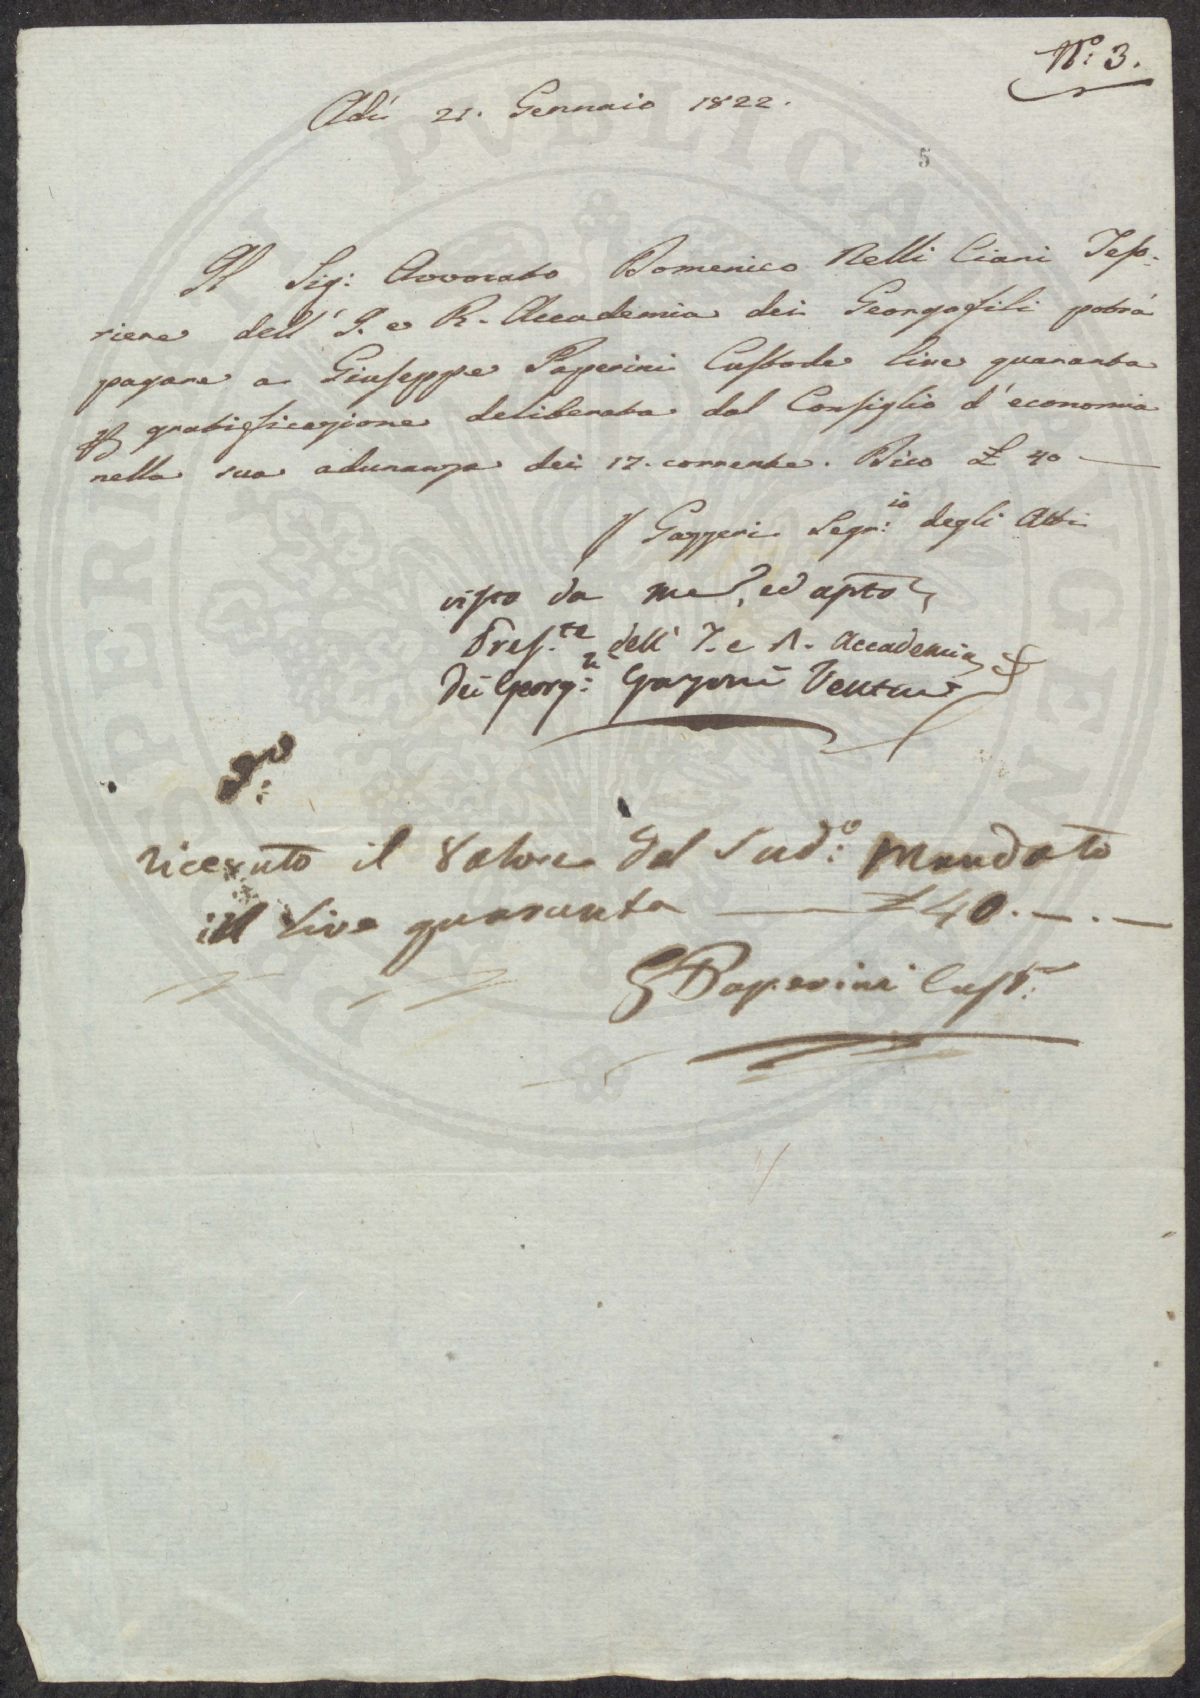 Nº: 3.
Adì 21. Gennaio 1822.
5
Il Sig: Avvocato Domenico Nelli Ciani Teso-
riere dell'I. e R. Accademia dei Georgofili potrà
pagare a Giuseppe Paperini Custode lire quaranta
gratificazione deliberata dal Consiglio d'economia
nella sua adunanza dei 17. corrente. Dico £ 40
Gazzeri Segr:io degli Atti
visto da me, ed apto
Pres.te dell' I. e R. Accademia
dei Georg:li Gazoni Venturi
ricevuto il Valore del Sud:o Mandato
in Lire quaranta — £ 40. — . —
G Paperini Cust: